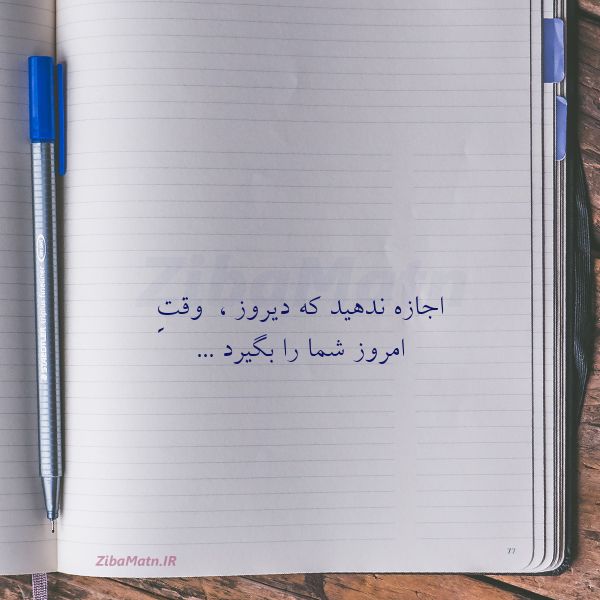 ZibaMatn
اجازه ندهید که دیروز ، وقتِ
امروز شما را بگیرد ...
STAEDTLER triplus fineliner
ZibaMatn.IR
77